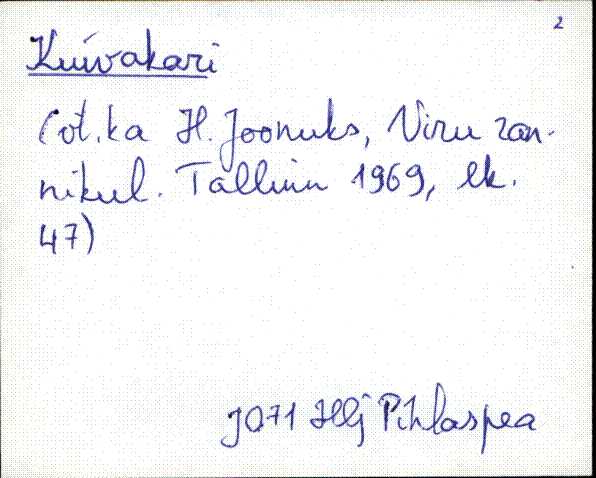 2
Kuivakari
(vt. ka H. Joonuks, Viru ran-
nikul. Tallinn 1969, lk.
47)
J071 Hlj Pihlaspea